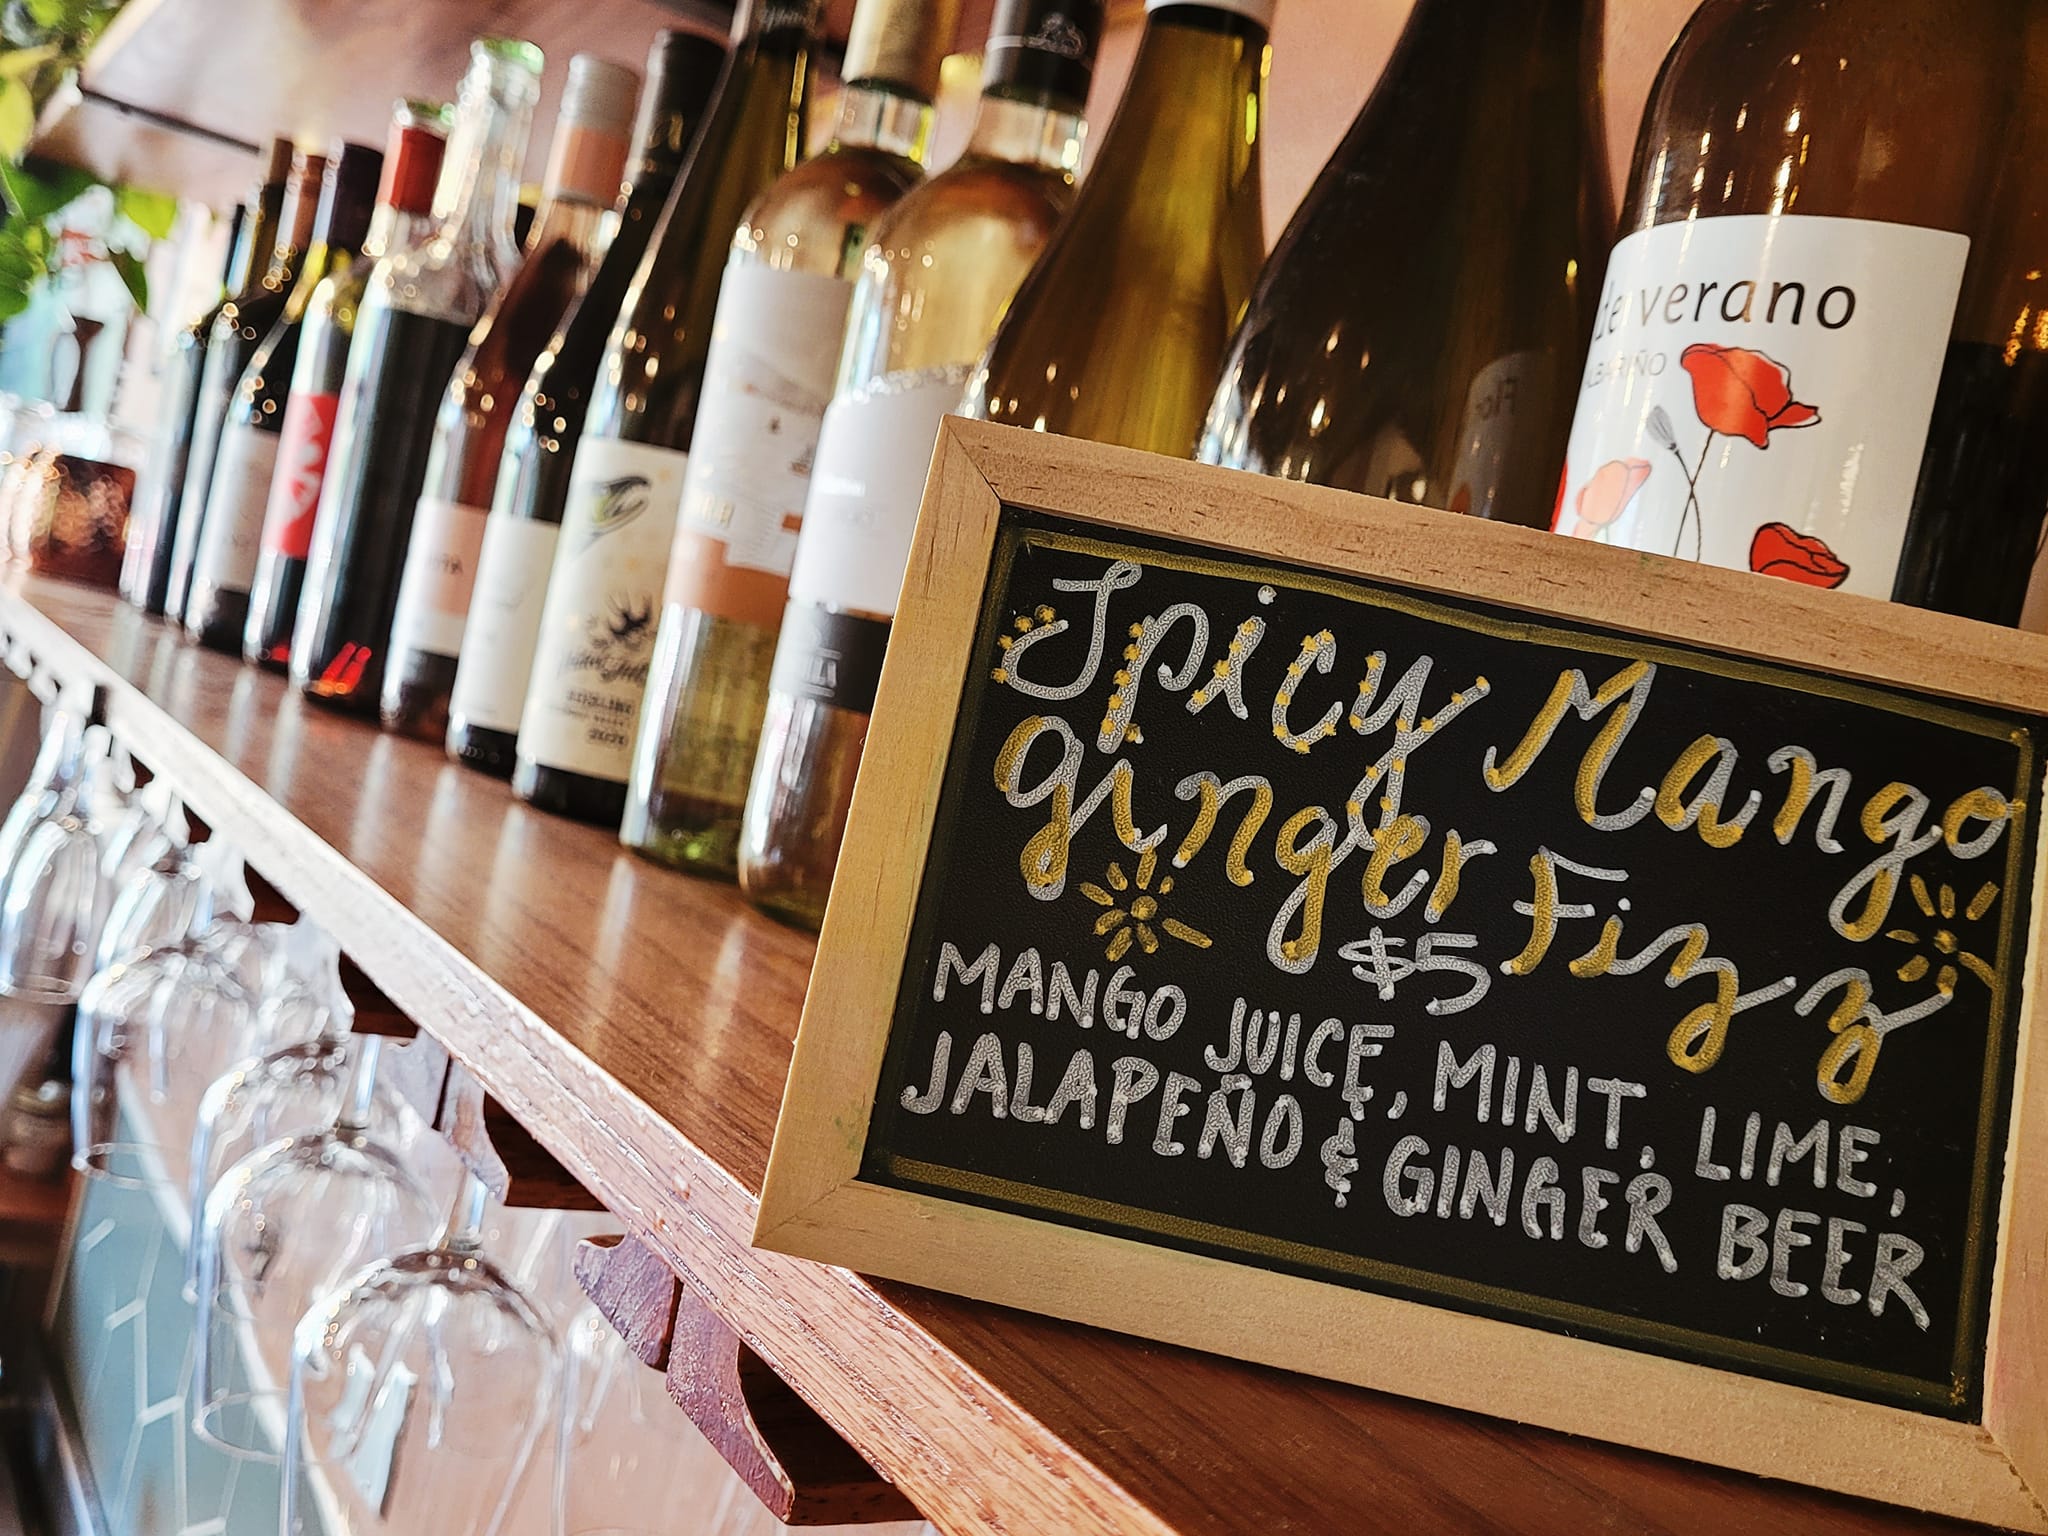 de verano
ALBARIÑO
Spicy Mango
Ginger Fizz
$5
MANGO JUICE, MINT, LIME,
JALAPEÑO & GINGER BEER